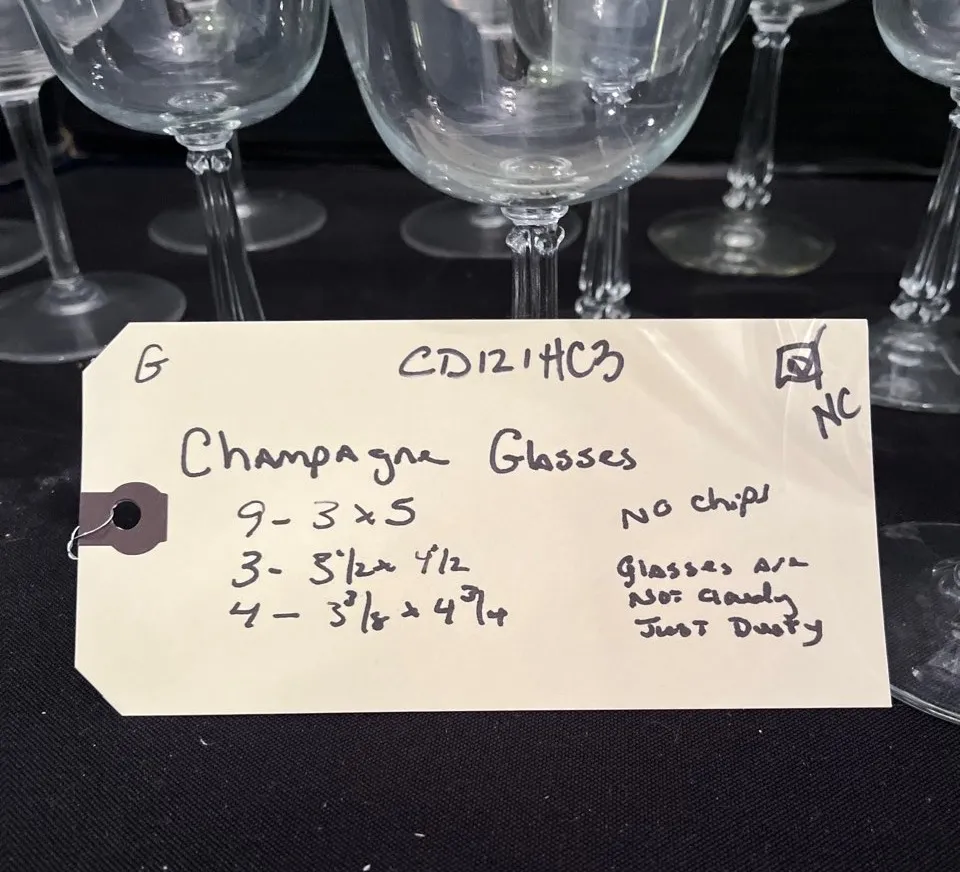 G CD121HC3
NC
Champagne Glasses
9 - 3 x 5
No chips
3 - 3 1/2 x 4 1/2
4 - 3 3/8 x 4 3/4
Glasses are
Not
Just Dusty